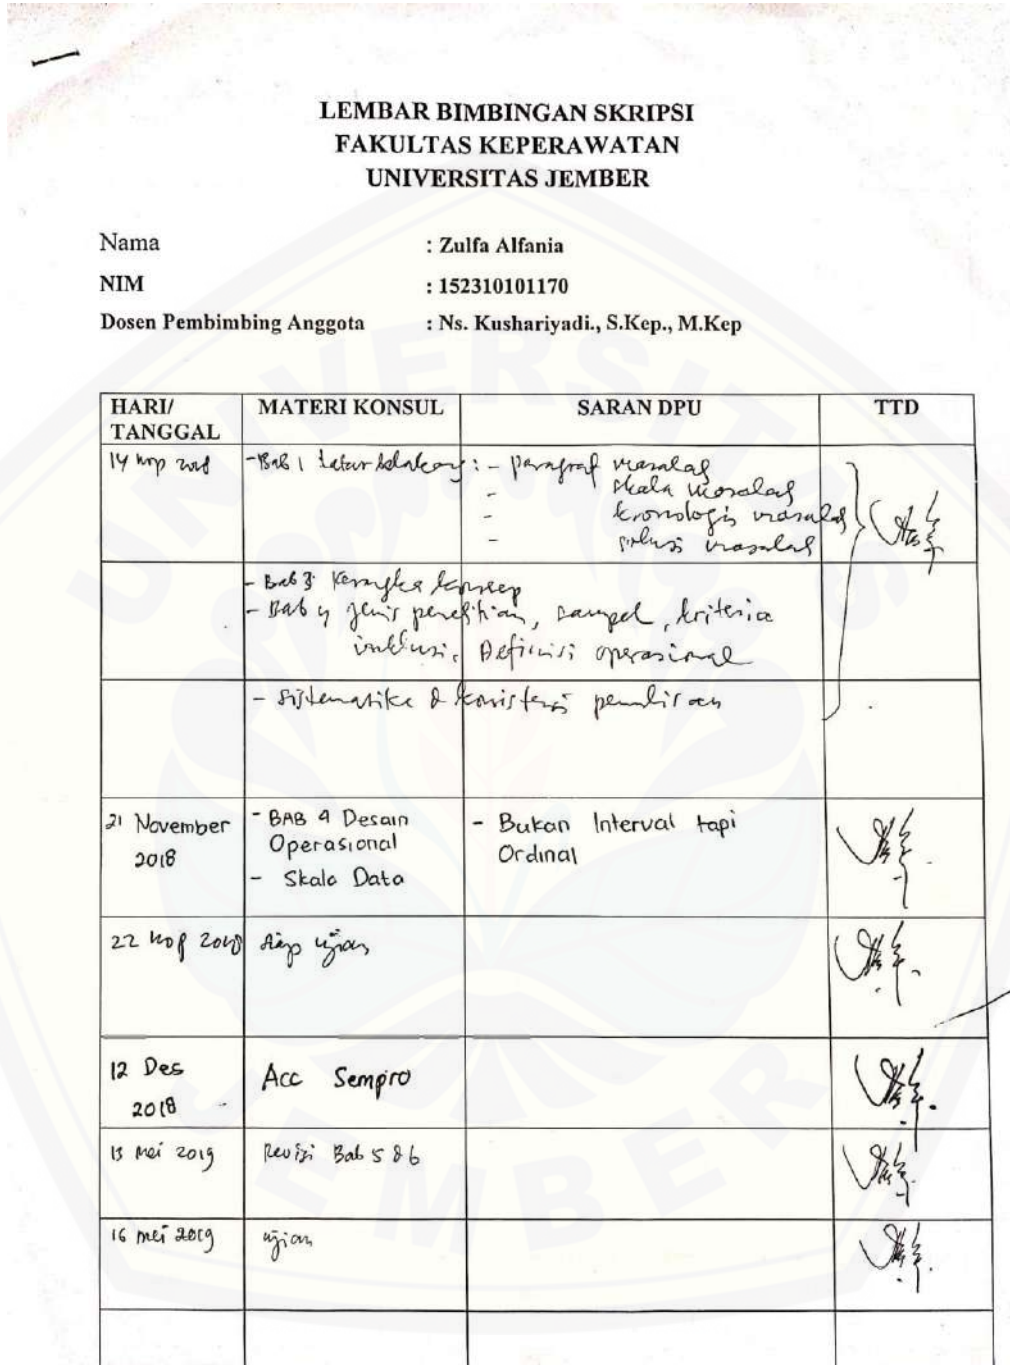 LEMBAR BIMBINGAN SKRIPSI
FAKULTAS KEPERAWATAN
UNIVERSITAS JEMBER
Nama : Zulfa Alfania
NIM : 152310101170
Dosen Pembimbing Anggota : Ns. Kushariyadi., S.Kep., M.Kep
HARI/ TANGGAL MATERI KONSUL SARAN DPU TTD
14 nop 2018 - Bab 1 latar belakang : - paragraf masalah
- skala masalah
- kronologis masalah
- solusi masalah
- Bab 3 Kerangka konsep
- Bab 4 jenis penelitian, sampel, kriteria
inklusi, Definisi operasional
- Sistematika & konsistensi penulisan
21 November - BAB 4 Desain - Bukan Interval tapi
2018 Operasional Ordinal
- Skala Data
22 nop 2018 siap ujian
12 Des Acc Sempro
2018
13 mei 2019 Revisi Bab 5 & 6
16 mei 2019 ujian
UNIVERSITAS
JEMBER